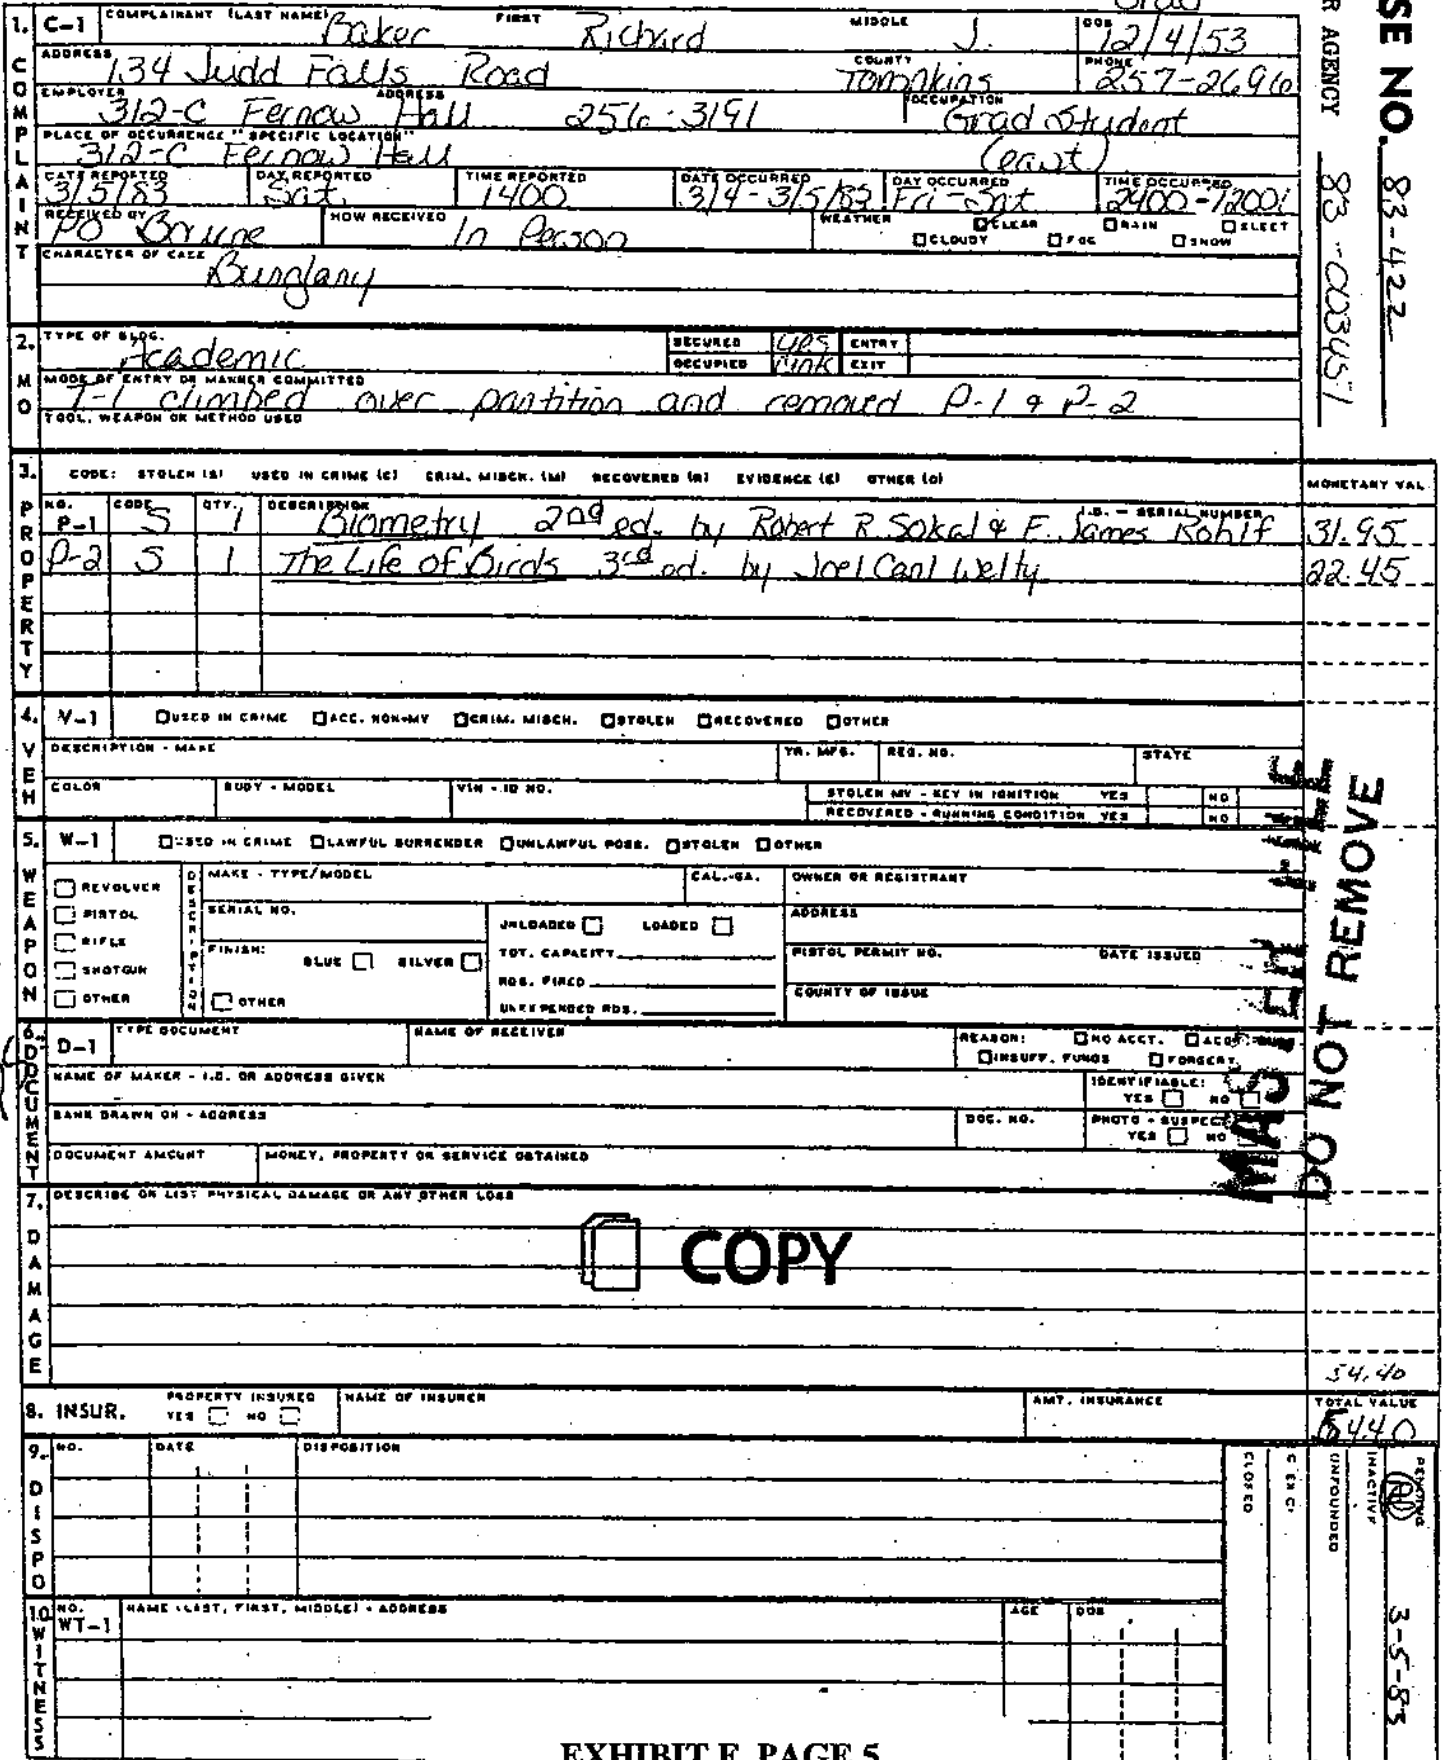 1. C-1 COMPLAINANT (LAST NAME) Baker FIRST Richard MIDDLE J. DOB 12/4/53
ADDRESS 134 Judd Falls Road COUNTY Tompkins PHONE 257-2696
EMPLOYER 312-C Fernow Hall ADDRESS 256-3191 OCCUPATION Grad Student
PLACE OF OCCURRENCE "SPECIFIC LOCATION" 312-C Fernow Hall
DATE REPORTED 3/5/83 DAY REPORTED Sat. TIME REPORTED 1400 DATE OCCURRED 3/4-3/5/83 DAY OCCURRED Fri-Sat TIME OCCURRED 2400-1200
RECEIVED BY PO HOW RECEIVED In Person WEATHER CLEAR RAIN SLEET
CLOUDY FOG SNOW
CHARACTER OF CASE Burglary
COMPLAINT
2. TYPE OF BLDG. Academic SECURED yes ENTRY
OCCUPIED unk EXIT
MO
MODE OF ENTRY OR MANNER COMMITTED
T-1 climbed over partition and removed P-1 & P-2
TOOL, WEAPON OR METHOD USED
3. CODE: STOLEN (S) USED IN CRIME (C) CRIM. MISCH. (M) RECOVERED (R) EVIDENCE (E) OTHER (O) MONETARY VAL
PROPERTY
NO. CODE QTY. DESCRIPTION I.D. - SERIAL NUMBER
P-1 S 1 Biometry 2nd ed. by Robert R. Sokal & F. James Rohlf 31.95
P-2 S 1 The Life of Birds 3rd ed. by Joel Carl Welty 22.45
4. V-1 USED IN CRIME ACC. NON-MV CRIM. MISCH. STOLEN RECOVERED OTHER
VEH
DESCRIPTION - MAKE YR. MFG. REG. NO. STATE
COLOR BODY - MODEL VIN - ID NO. STOLEN MV - KEY IN IGNITION YES NO
RECOVERED - RUNNING CONDITION YES NO
5. W-1 USED IN CRIME LAWFUL SURRENDER UNLAWFUL POSS. STOLEN OTHER
WEAPON
REVOLVER
PISTOL
RIFLE
SHOTGUN
OTHER
DESCRIPTION
MAKE - TYPE/MODEL CAL.-GA. OWNER OR REGISTRANT
SERIAL NO. UNLOADED LOADED ADDRESS
FINISH: BLUE SILVER TOT. CAPACITY PISTOL PERMIT NO. DATE ISSUED
OTHER RDS. FIRED COUNTY OF ISSUE
UNEXPENDED RDS.
6. D-1 TYPE DOCUMENT NAME OF RECEIVER REASON: NO ACCT.
INSUFF. FUNDS FORGERY
DOCUMENT
NAME OF MAKER - I.D. OR ADDRESS GIVEN IDENTIFIABLE:
YES NO
BANK DRAWN ON - ADDRESS DOC. NO. PHOTO - SUSPECT
YES NO
DOCUMENT AMOUNT MONEY, PROPERTY OR SERVICE OBTAINED
7. DESCRIBE OR LIST PHYSICAL DAMAGE OR ANY OTHER LOSS
DAMAGE
COPY
54.40
8. INSUR. PROPERTY INSURED YES NO NAME OF INSURER AMT. INSURANCE TOTAL VALUE
54.40
9. NO. DATE DISPOSITION
DISPO
10. NO. NAME (LAST, FIRST, MIDDLE) - ADDRESS AGE DOB
WT-1
WITNESS
EXHIBIT F, PAGE 5
SE NO. 83-422
R AGENCY
DO NOT REMOVE
PENDING
INACTIVE
UNFOUNDED
CLOSED
3-5-83